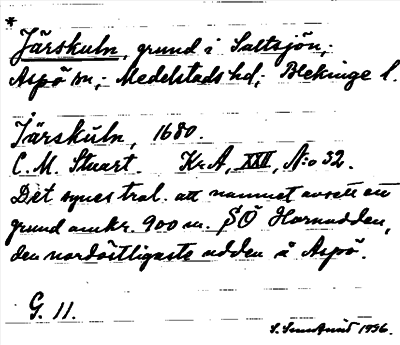 *
Järskuln, grund i Saltsjön,
Aspö sn; Medelstads hd; Blekinge l.
Järskuln, 1680.
C. M. Stuart. Kr. A, XXII, N:o 32.
Det synes trol. att namnet avsett en
grund omkr. 900 m. SÖ Hornudden,
den nordöstligaste udden å Aspö.
G. 11.
1936.